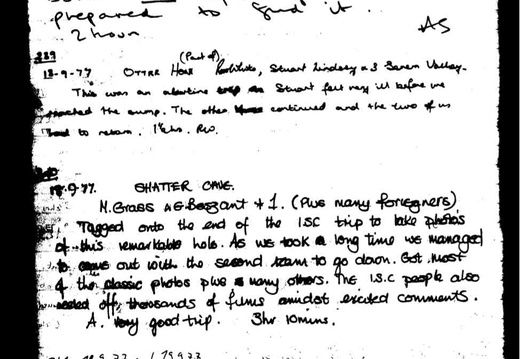 prepared to gud it.
2 hour
AS
239
(Part of)
18-9-77 OTTER HOLE Stuart Lindsey & 3 Severn Valley.
This was an abortive trip as Stuart felt very ill before we
reached the sump. The other continued and the two of us
had to return. 1½hrs. RW.
18.9.77. SHATTER CAVE.
M.Grass & G.Bezzant + 1. (Plus many foriegners)
Tagged onto the end of the ISC trip to take photos
of this remarkable hole. As we took a long time we managed
to come out with the second team to go down. Got most
of the classic photos plus many others. The I.S.C people also
reeled off thousands of films amidst excited comments.
A. very good trip. 3hr 10mins.